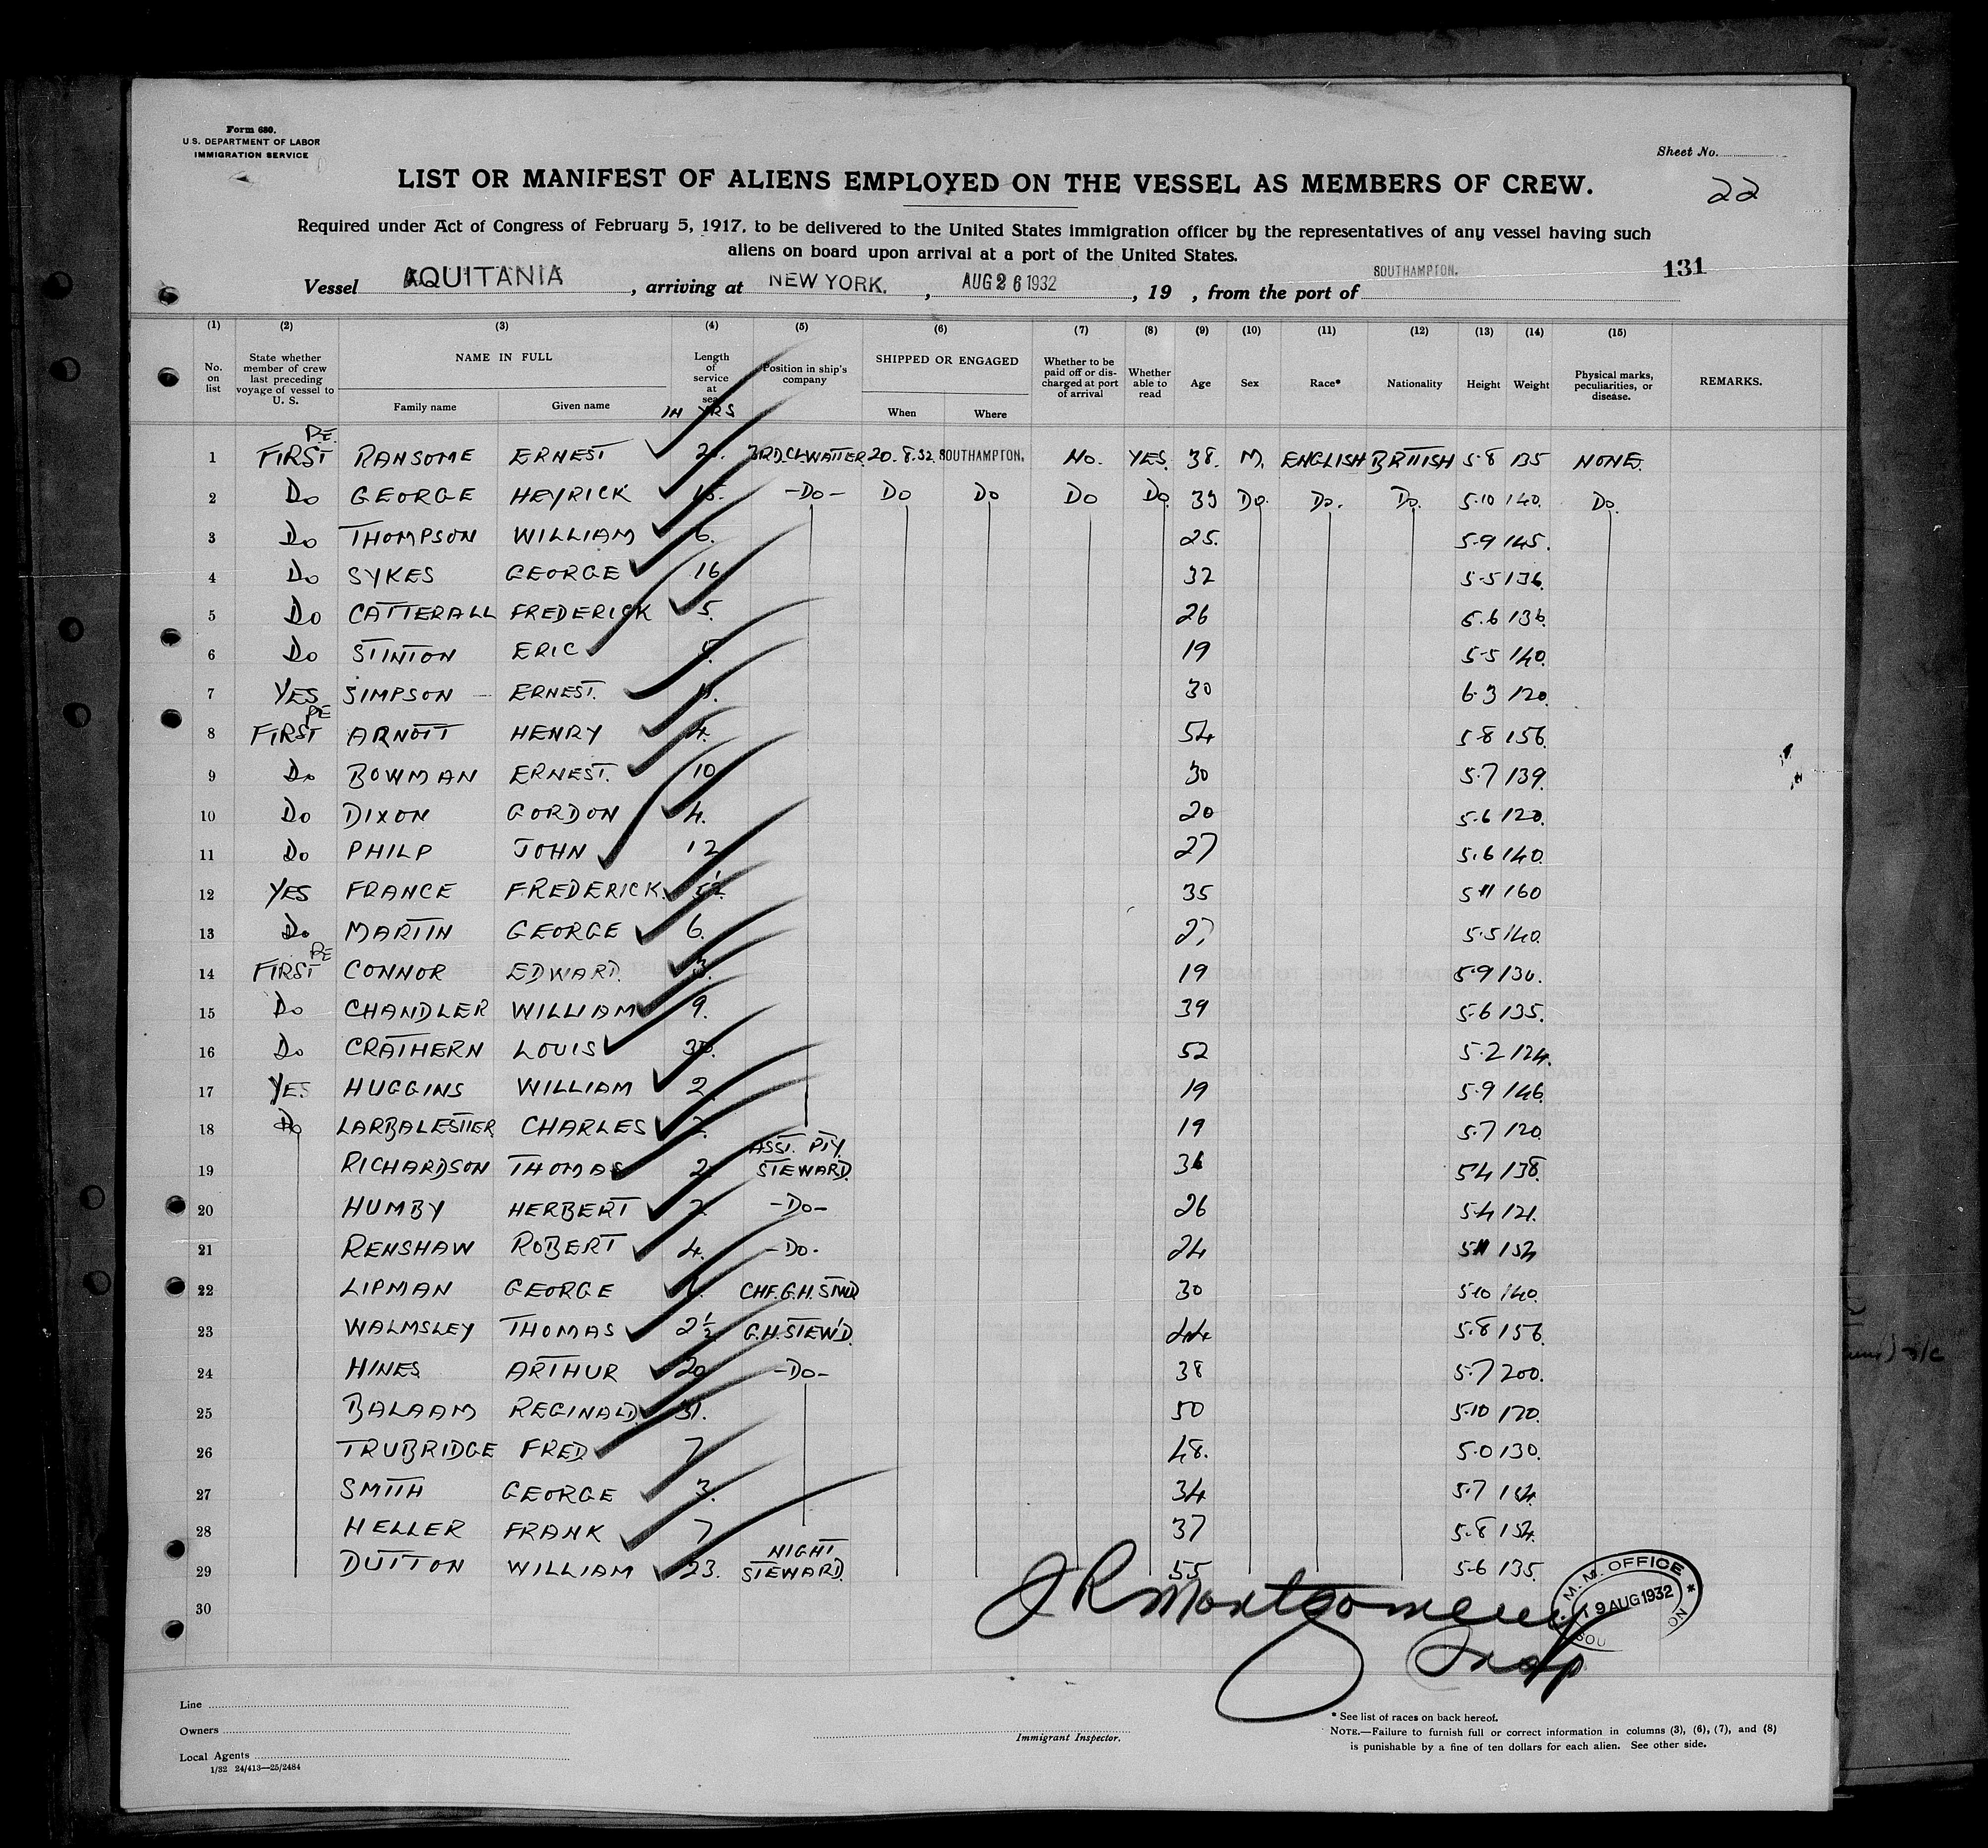 Form 680.
U.S. DEPARTMENT OF LABOR
IMMIGRATION SERVICE
Sheet No.
22
LIST OR MANIFEST OF ALIENS EMPLOYED ON THE VESSEL AS MEMBERS OF CREW.
Required under Act of Congress of February 5, 1917, to be delivered to the United States immigration officer by the representatives of any vessel having such
aliens on board upon arrival at a port of the United States.
Vessel AQUITANIA, arriving at NEW YORK, AUG 26 1932, 19 , from the port of SOUTHAMPTON. 131
(1) (2) (3) (4) (5) (6) (7) (8) (9) (10) (11) (12) (13) (14) (15)
No. on list
State whether member of crew last preceding voyage of vessel to U. S.
NAME IN FULL
Family name Given name
Length of service at sea
IN YRS
Position in ship's company
SHIPPED OR ENGAGED
When Where
Whether to be paid off or discharged at port of arrival
Whether able to read
Age Sex Race* Nationality Height Weight
Physical marks, peculiarities, or disease.
REMARKS.
RE
1 FIRST RANSOME ERNEST 3RD.CL.WAITER 20.8.32. SOUTHAMPTON. NO. YES. 38. M. ENGLISH BRITISH 5.8 135 NONE.
2 DO GEORGE HEYRICK 15. -DO- DO DO DO DO 39 DO. DO. DO. 5.10 140. DO.
3 DO THOMPSON WILLIAM 6. 25. 5.9 145.
4 DO SYKES GEORGE 16 32 5.5 136.
5 DO CATTERALL FREDERICK 5. 26 5.6 136.
6 DO STINTON ERIC 19 5.5 140.
7 YES SIMPSON ERNEST. 11. 30 6.3 120.
RE
8 FIRST ARNOTT HENRY 4. 54 5.8 156.
9 DO BOWMAN ERNEST. 10 30 5.7 139.
10 DO DIXON GORDON 4. 20 5.6 120.
11 DO PHILP JOHN 12 27 5.6 140.
12 YES FRANCE FREDERICK. 5½ 35 5.11 160
13 DO MARTIN GEORGE 6. 27 5.5 140.
RE
14 FIRST CONNOR EDWARD. 3. 19 5.9 130.
15 DO CHANDLER WILLIAM 9. 39 5.6 135.
16 DO CRATHERN LOUIS 52 5.2 124.
17 YES HUGGINS WILLIAM 2. 19 5.9 146.
18 DO LARBALESTIER CHARLES 2. 19 5.7 120.
ASST. PTY.
19 RICHARDSON THOMAS 2. STEWARD. 36 5.4 138.
20 HUMBY HERBERT 2. -DO- 26 5.4 121.
21 RENSHAW ROBERT 4. -DO- 24 5.11 154
22 LIPMAN GEORGE CHF.G.H.STWD 30 5.10 140.
23 WALMSLEY THOMAS 2½ G.H.STEW'D. 44 5.8 156.
24 HINES ARTHUR 20 -DO- 38 5.7 200.
25 BALAAM REGINALD. 31. 50 5.10 170.
26 TRUBRIDGE FRED. 7 48. 5.0 130.
27 SMITH GEORGE 3. 34 5.7
28 HELLER FRANK 7 37 5.8 154.
NIGHT
29 DUTTON WILLIAM 23. STEWARD. 55 5.6 135.
30
J R Montgomery
Insp
M.M. OFFICE
19 AUG 1932
Line
Owners
Local Agents
1/32 24/413—25/2484
Immigrant Inspector.
* See list of races on back hereof.
NOTE.—Failure to furnish full or correct information in columns (3), (6), (7), and (8)
is punishable by a fine of ten dollars for each alien. See other side.